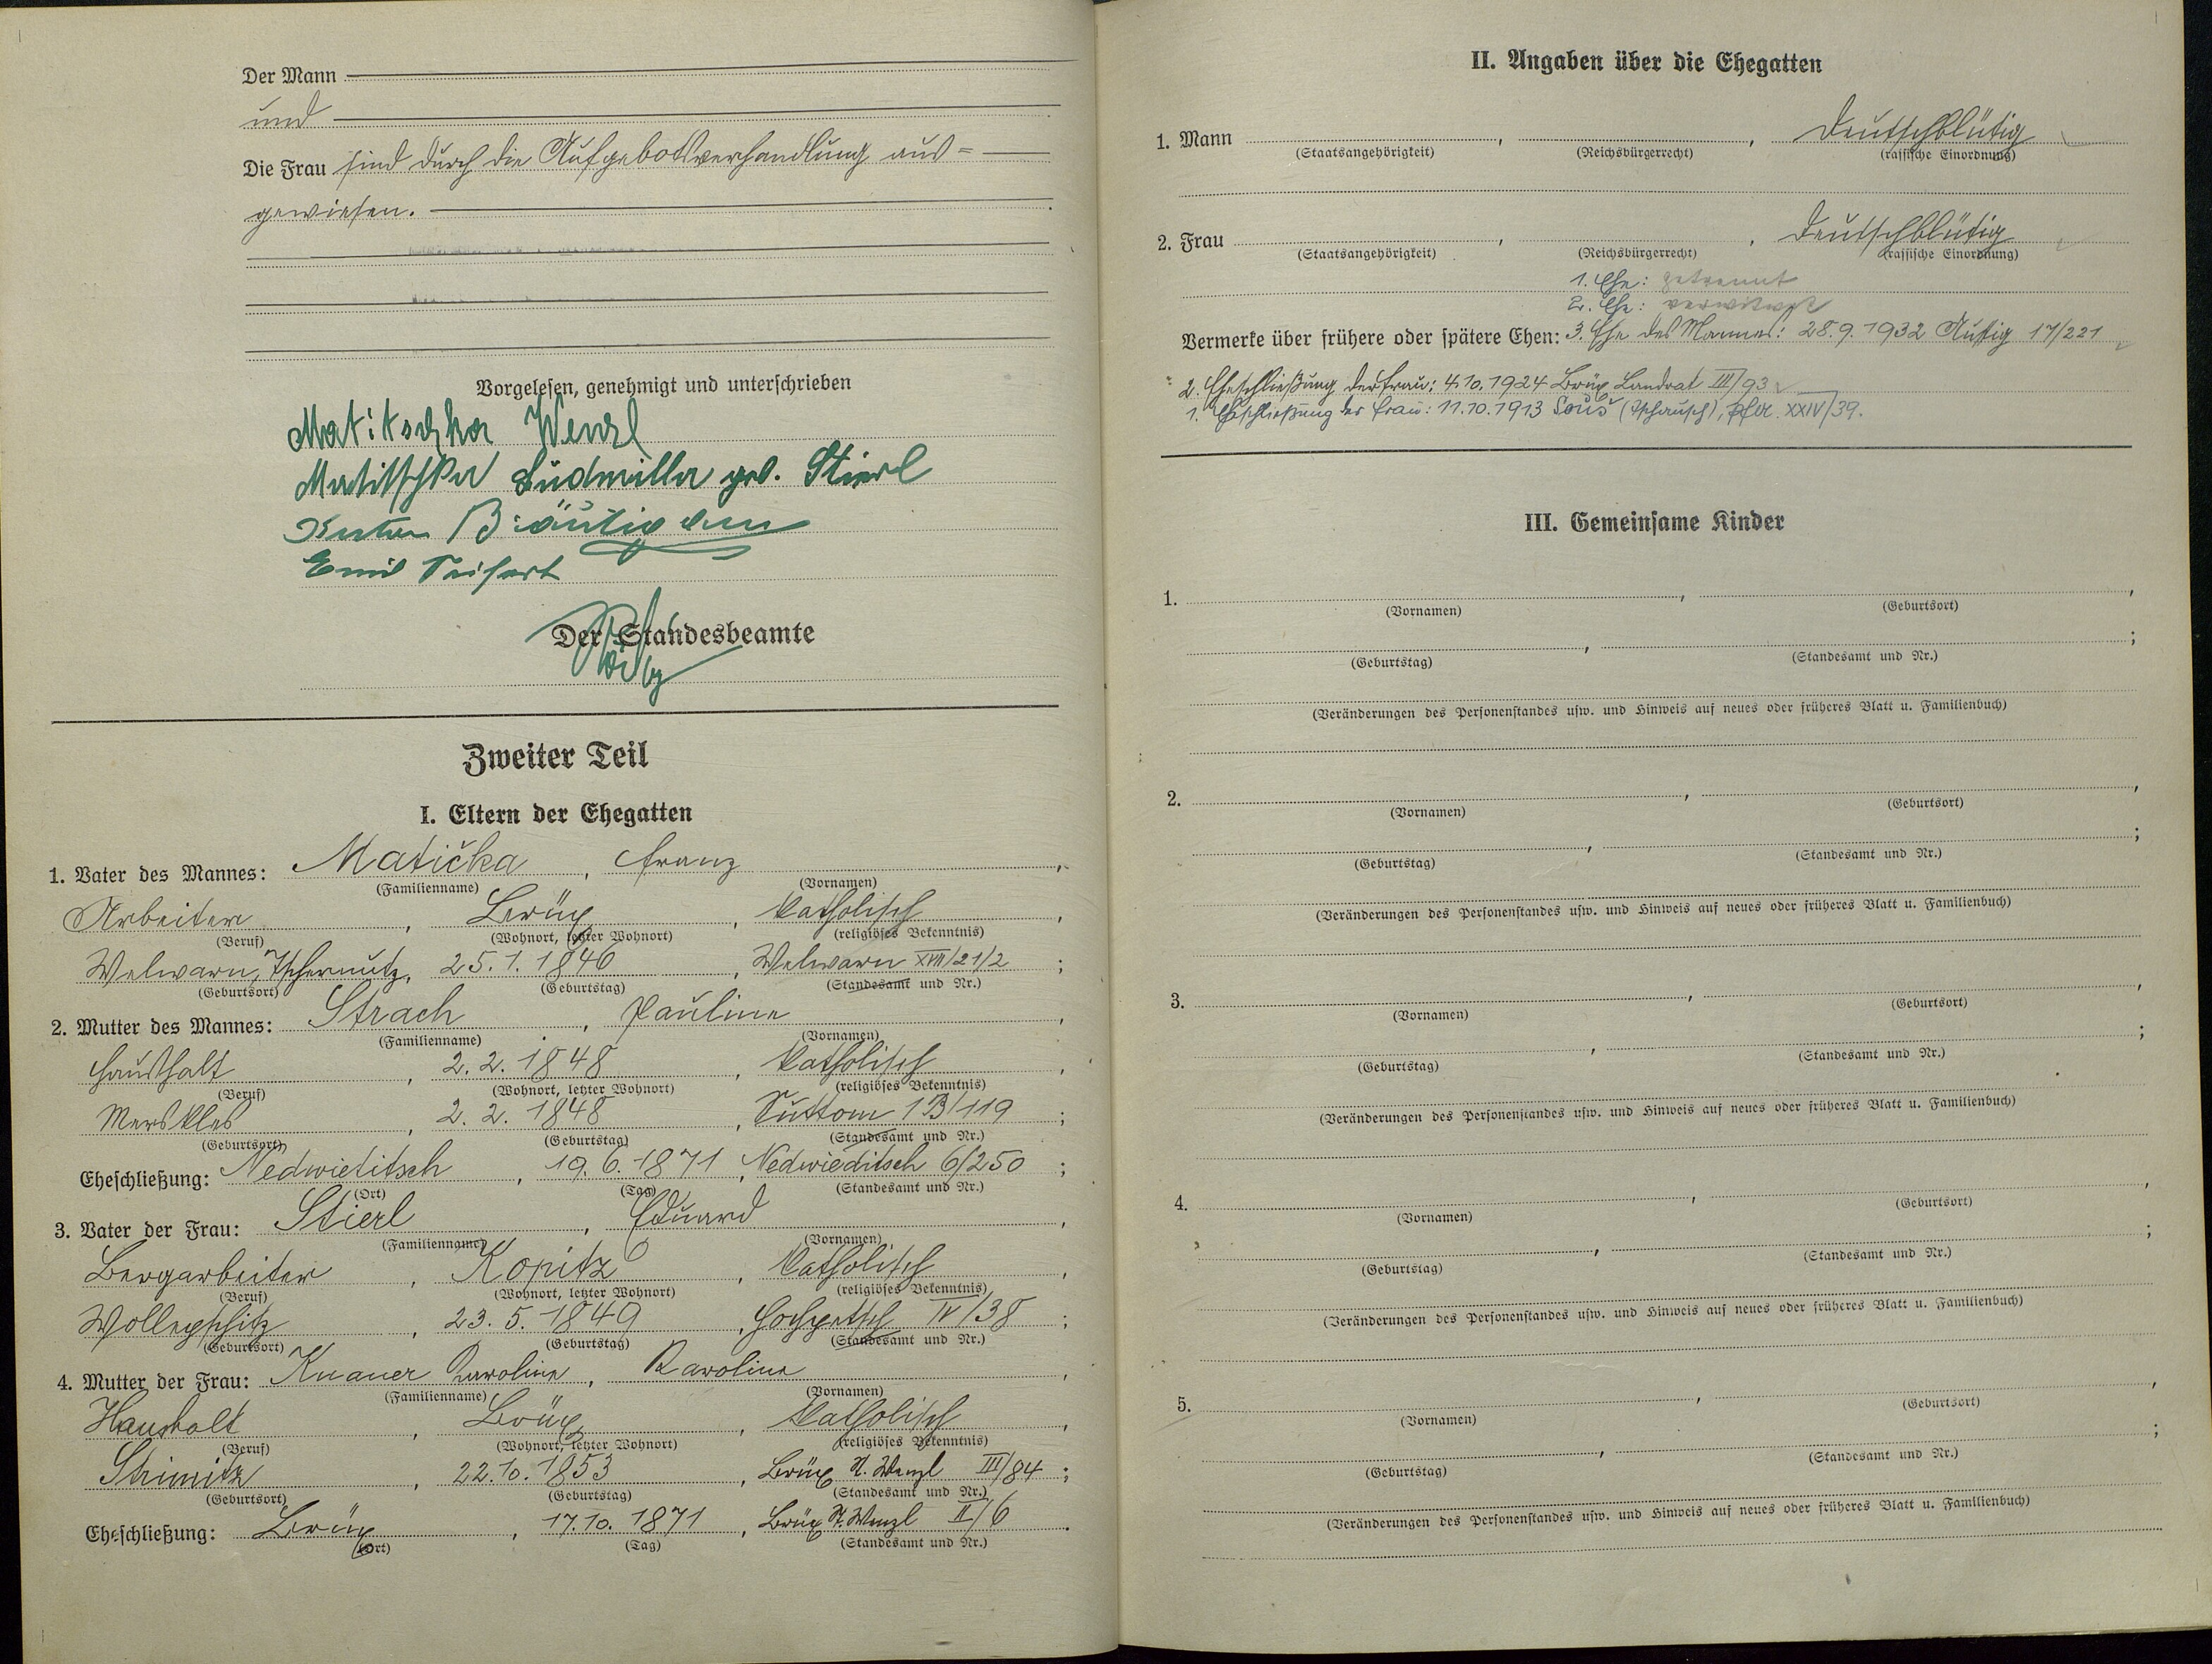 Der Mann
und
Die Frau sind durch die Aufgebotsverhandlung aus=
gewiesen.
Vorgelesen, genehmigt und unterschrieben
Matitschka Wenzl
Matitschka Ludmilla geb. Stierl
Anton Bräutigam
Emil Seifert
Der Standesbeamte
Zweiter Teil
I. Eltern der Ehegatten
1. Vater des Mannes: Matička, Franz,
(Familienname) (Vornamen)
Arbeiter, Brüx, katholisch,
(Beruf) (Wohnort, letzter Wohnort) (religiöses Bekenntnis)
Welwarn, Tschernutz, 25.1.1846, Welwarn XVII/21/2;
(Geburtsort) (Geburtstag) (Standesamt und Nr.)
2. Mutter des Mannes: Strach, Pauline,
(Familienname) (Vornamen)
Haushalt, 2.2.1848, katholisch,
(Beruf) (Wohnort, letzter Wohnort) (religiöses Bekenntnis)
Merskles, 2.2.1848, Suttom 1B/119;
(Geburtsort) (Geburtstag) (Standesamt und Nr.)
Eheschließung: Nedwietitsch, 19.6.1871, Nedwieditsch 6/250;
(Ort) (Tag) (Standesamt und Nr.)
3. Vater der Frau: Stierl, Eduard,
(Familienname) (Vornamen)
Bergarbeiter, Kopitz, katholisch,
(Beruf) (Wohnort, letzter Wohnort) (religiöses Bekenntnis)
Wollepschitz, 23.5.1849, Hochpetsch IV/38;
(Geburtsort) (Geburtstag) (Standesamt und Nr.)
4. Mutter der Frau: Knauer Karoline, Karoline,
(Familienname) (Vornamen)
Haushalt, Brüx, katholisch,
(Beruf) (Wohnort, letzter Wohnort) (religiöses Bekenntnis)
Strimitz, 22.10.1853, Brüx St. Wenzl III/84;
(Geburtsort) (Geburtstag) (Standesamt und Nr.)
Eheschließung: Brüx, 17.10.1871, Brüx St. Wenzl II/6.
(Ort) (Tag) (Standesamt und Nr.)
II. Angaben über die Ehegatten
1. Mann , , Deutschblütig
(Staatsangehörigkeit) (Reichsbürgerrecht) (rassische Einordnung)
2. Frau , , Deutschblütig
(Staatsangehörigkeit) (Reichsbürgerrecht) (rassische Einordnung)
1. Ehe: getrennt
2. Ehe: verwitwet
Vermerke über frühere oder spätere Ehen: 3. Ehe des Mannes: 28.9.1932 Aussig 17/221
2. Eheschließung der Frau: 4.10.1924 Brüx Landrat III/93
1. Eheschließung der Frau: 11.10.1913 Souš (Tschausch), Pfar. XXIV/39.
III. Gemeinsame Kinder
1. , ,
(Vornamen) (Geburtsort)
, ;
(Geburtstag) (Standesamt und Nr.)
(Veränderungen des Personenstandes usw. und Hinweis auf neues oder früheres Blatt u. Familienbuch)
2. , ,
(Vornamen) (Geburtsort)
, ;
(Geburtstag) (Standesamt und Nr.)
(Veränderungen des Personenstandes usw. und Hinweis auf neues oder früheres Blatt u. Familienbuch)
3. , ,
(Vornamen) (Geburtsort)
, ;
(Geburtstag) (Standesamt und Nr.)
(Veränderungen des Personenstandes usw. und Hinweis auf neues oder früheres Blatt u. Familienbuch)
4. , ,
(Vornamen) (Geburtsort)
, ;
(Geburtstag) (Standesamt und Nr.)
(Veränderungen des Personenstandes usw. und Hinweis auf neues oder früheres Blatt u. Familienbuch)
5. , ,
(Vornamen) (Geburtsort)
, ;
(Geburtstag) (Standesamt und Nr.)
(Veränderungen des Personenstandes usw. und Hinweis auf neues oder früheres Blatt u. Familienbuch)